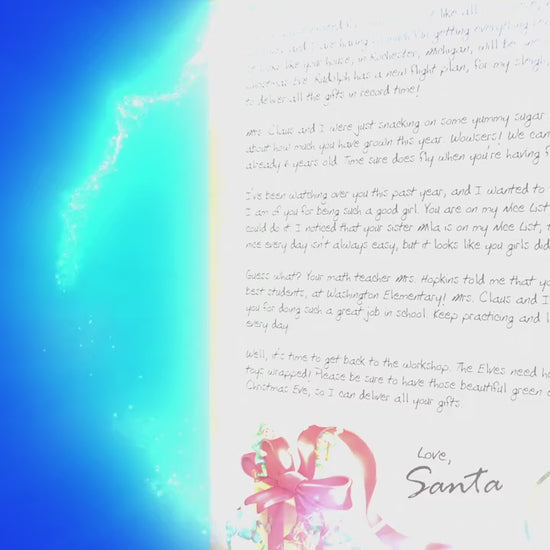 like all
and I are having getting everything
like your house, in Rochester, Michigan, will be
Christmas Eve. Rudolph has a new flight plan, for my sleigh,
to deliver all the gifts in record time!
Mrs. Claus and I were just snacking on some yummy sugar
about how much you have grown this year. Wowsers! We can
already 6 years old. Time sure does fly when you're having f
I've been watching over you this past year, and I wanted to
I am of you for being such a good girl. You are on my Nice List
could do it. I noticed that your sister Mila is on my Nice List, t
nice every day isn't always easy, but it looks like you girls did
Guess what? Your math teacher Mrs. Hopkins told me that yo
best students, at Washington Elementary! Mrs. Claus and I
you for doing such a great job in school. Keep practicing and l
every day.
Well, it's time to get back to the workshop. The Elves need he
toys wrapped! Please be sure to have those beautiful green
Christmas Eve, so I can deliver all your gifts.
Love,
Santa